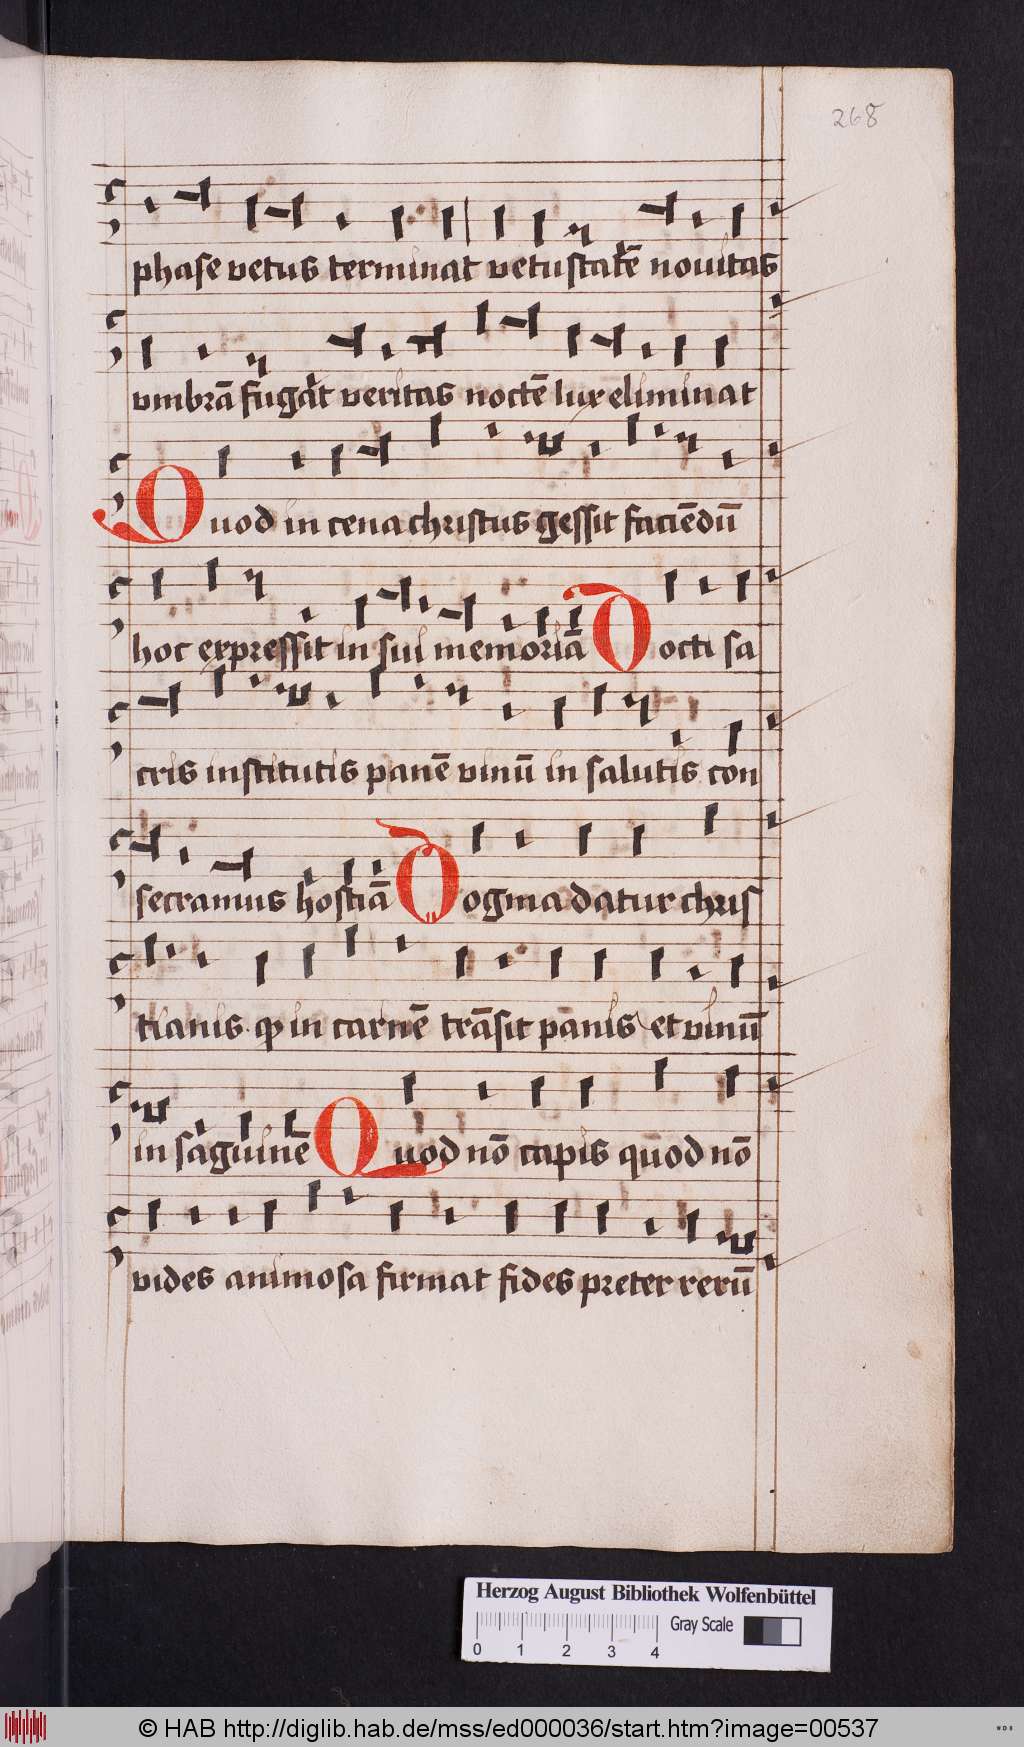 268
phase vetus terminat vetustatē nouitas
vmbrā fugat veritas noctē lux eliminat
Quod in cena christus gessit faciēdū
hoc expressit in sui memoriā Docti sa
cris institutis panē vinū in salutis con
secramus hostiā Dogma datur chris
tianis ꝙ in carnē trāsit panis et vinū
in saguinē Quod nō capis quod nō
vides animosa firmat fides preter rerū
Herzog August Bibliothek Wolfenbüttel
Gray Scale
0 1 2 3 4
© HAB http://diglib.hab.de/mss/ed000036/start.htm?image=00537